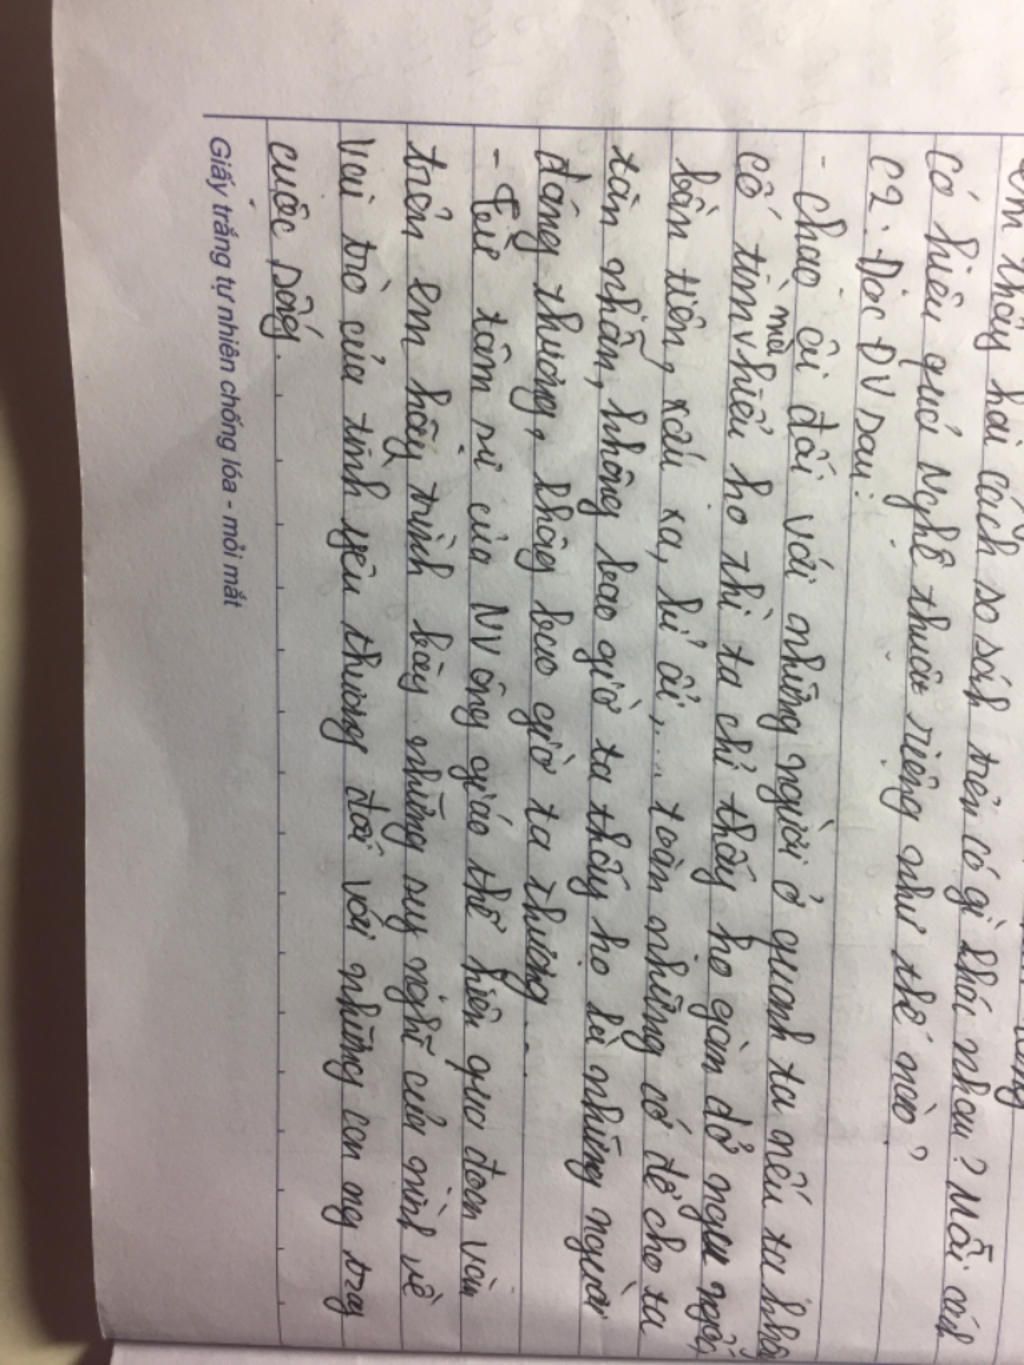 em thấy hai cách so sánh trên có gì khác nhau? Mỗi cách
có hiệu quả Nghệ thuật riêng như thế nào?
C2: Đọc ĐV sau:
- Chao ôi đối với những người ở quanh ta nếu ta không
cố tìm mà hiểu họ thì ta chỉ thấy họ gàn dở ngu ngốc,
bần tiện, xấu xa, bỉ ổi,... toàn những cớ để cho ta
tàn nhẫn, không bao giờ ta thấy họ là những người
đáng thương, không bao giờ ta thương...
- Từ tâm sự của NV ông giáo thể hiện qua đoạn văn
trên em hãy trình bày những suy nghĩ của mình về
vai trò của tình yêu thương đối với những con ng trog
cuộc sống.
Giấy trắng tự nhiên chống lóa - mỏi mắt